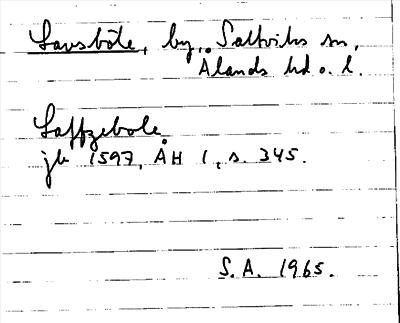 Lavsböle, by, Saltviks sn,
Ålands hd o. l.
Laffzebole
jb 1597, ÅH 1, s. 345.
S. A. 1965.